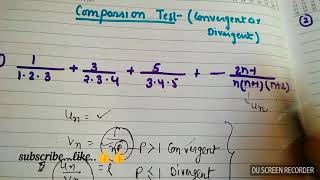 Comparsion Test - (Convergent or Divergent)
(2)
1/1·2·3 + 3/2·3·4 + 5/3·4·5 + - 2n-1/n(n+1)(n+2)
un
un = ✓
vn = 1/nP P > 1 Convergent
P ≤ 1 Divergent
un/vn = l
subscribe..like..👍👍
DU SCREEN RECORDER